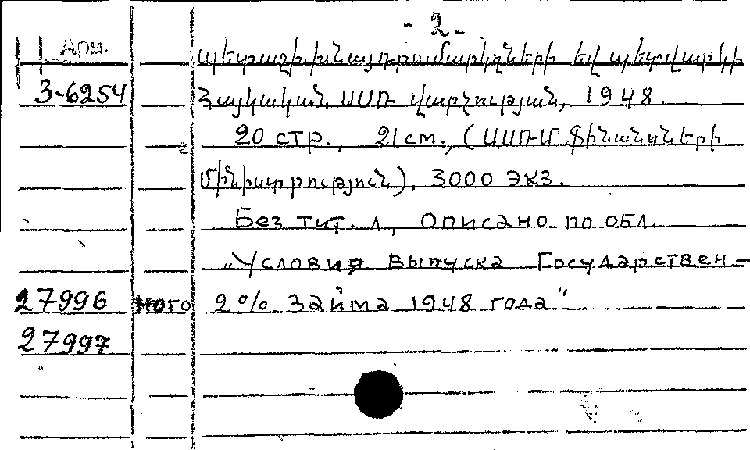 - 2 -
Арм. պետաշխխնայդրամարկղների եվ պետվարկի
3-6254 Հայկական ՍՍՌ վարչության, 1948.
20 стр., 21 см., (ՍՍՌՄ Ֆինանսների
Մինիստրություն), 3000 экз.
Без тит. л., описано по обл.
„Условия выпуска Государствен-
27996 ного 2% займа 1948 года"
27997